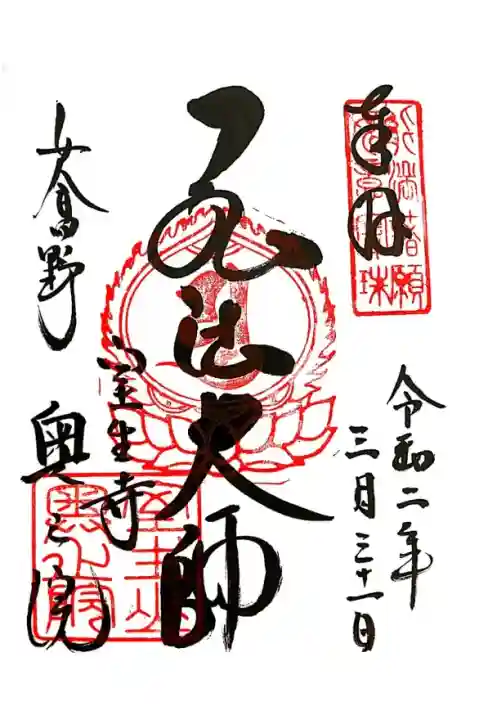 奉拝
能満諸願
令和二年
三月三十一日
弘法大師
女高野
室生寺
奥之院